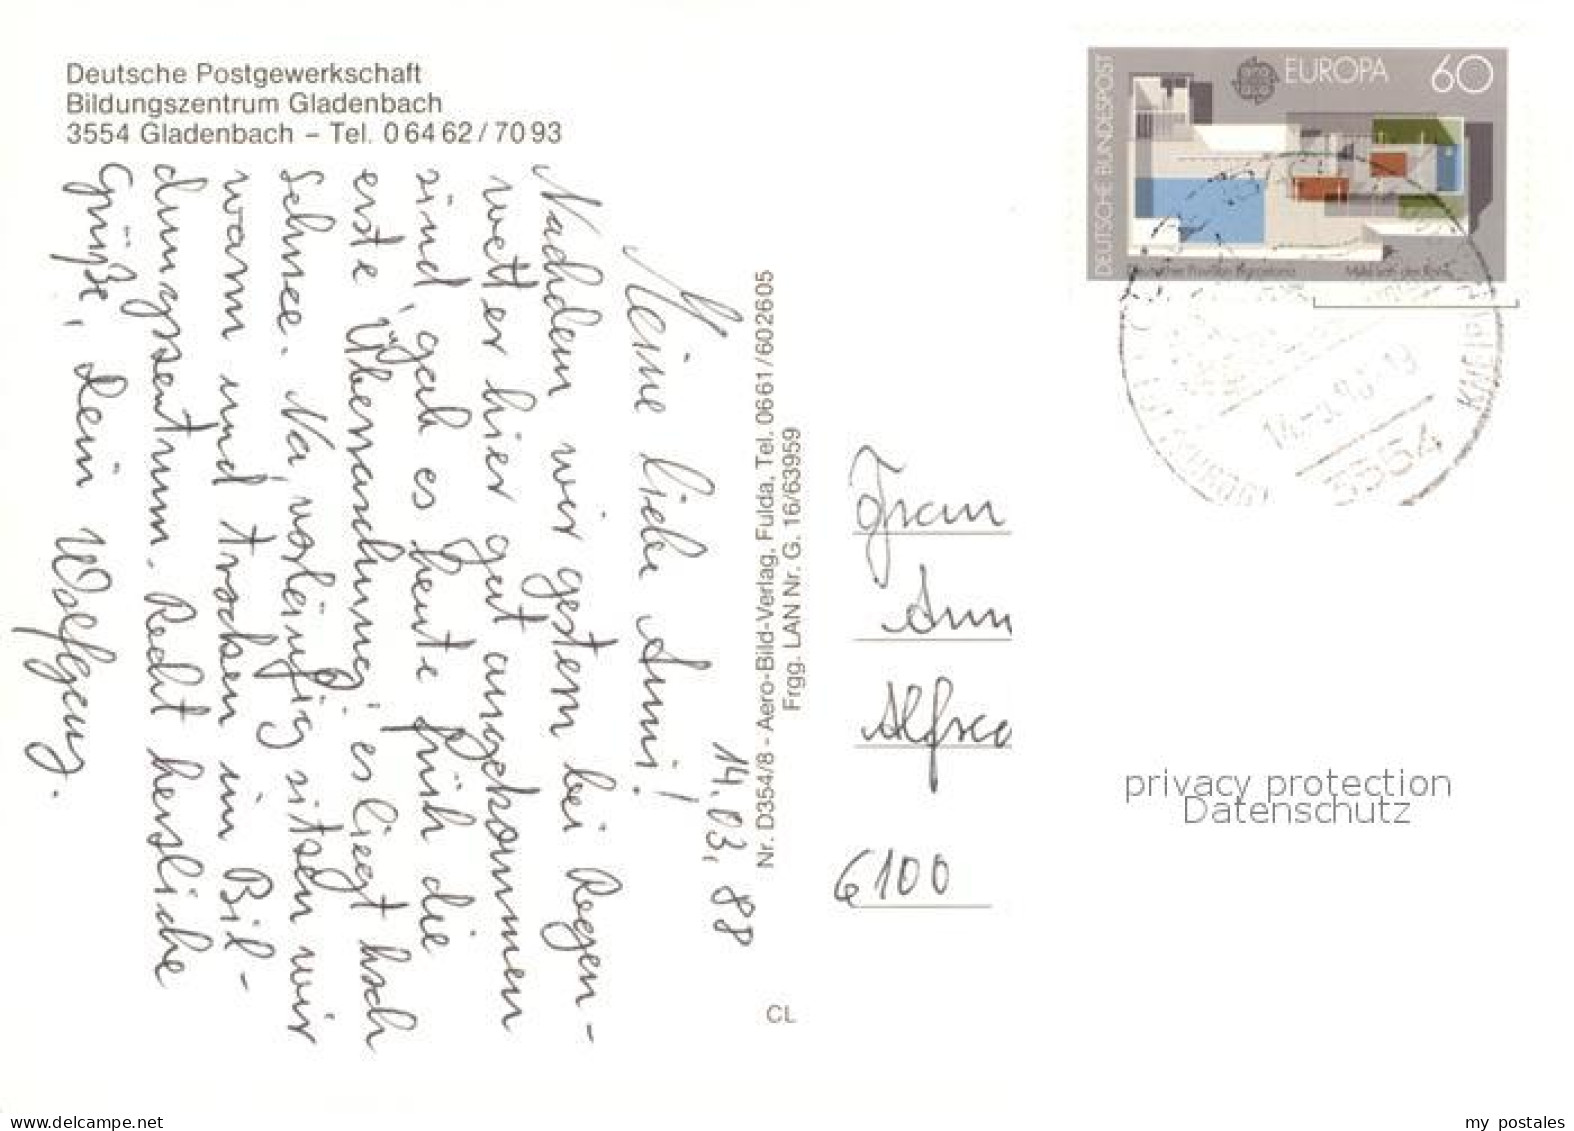 Deutsche Postgewerkschaft
Bildungszentrum Gladenbach
3554 Gladenbach – Tel. 0 64 62 / 70 93
14.03.88
Meine liebe Anni!
Nachdem wir gestern bei Regen-
wetter hier gut angekommen
sind, gab es heute früh die
erste "Überraschung": es liegt hoch
Schnee. Na, vorläufig sitzen wir
warm und trocken im Bil-
dungszentrum. Recht herzliche
Grüße, Dein Wolfgang.
Nr. D354/8 - Aero-Bild-Verlag, Fulda, Tel. 0661/602605
Frgg. LAN Nr. G. 16/63959
CL
DEUTSCHE BUNDESPOST
EUROPA
60
Deutscher Pavillon Barcelona
Mies van der Rohe
3554
Frau
Ann
Alfred
6100
privacy protection
Datenschutz
www.delcampe.net
my postales